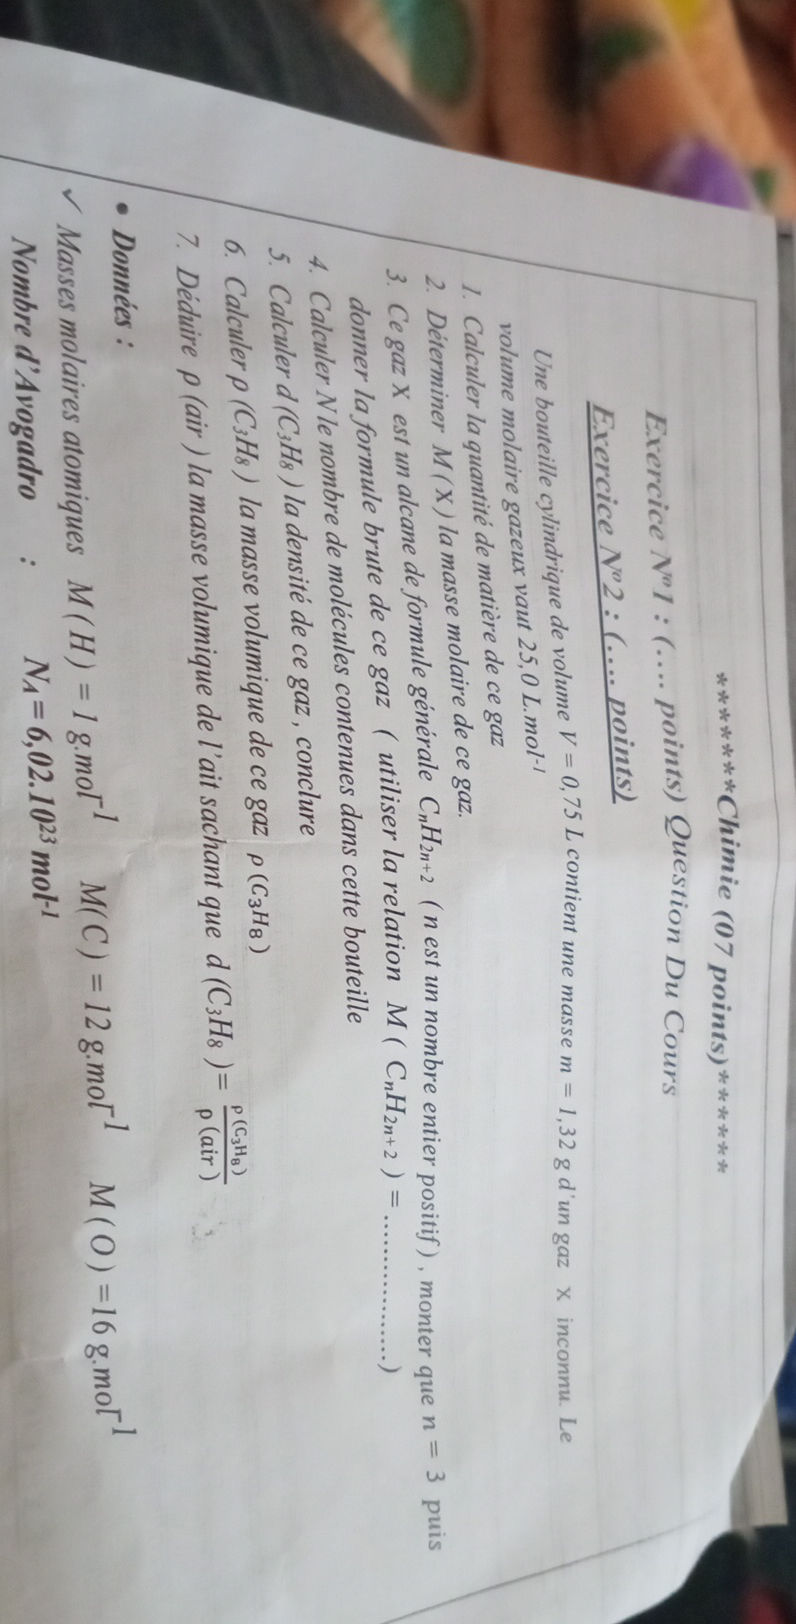 *******Chimie (07 points)******
Exercice N°1 : (.... points) Question Du Cours
Exercice N°2 : (.... points)
Une bouteille cylindrique de volume V = 0,75 L contient une masse m = 1,32 g d'un gaz X inconnu. Le
volume molaire gazeux vaut 25,0 L.mol⁻¹
1. Calculer la quantité de matière de ce gaz
2. Déterminer M(X) la masse molaire de ce gaz.
3. Ce gaz X est un alcane de formule générale CₙH₂ₙ₊₂ (n est un nombre entier positif) , monter que n = 3 puis
donner la formule brute de ce gaz ( utiliser la relation M ( CₙH₂ₙ₊₂ ) = ..................)
4. Calculer N le nombre de molécules contenues dans cette bouteille
5. Calculer d (C₃H₈ ) la densité de ce gaz , conclure
6. Calculer ρ (C₃H₈ ) la masse volumique de ce gaz ρ (C₃H₈ )
7. Déduire ρ (air ) la masse volumique de l'ait sachant que d (C₃H₈ )= ρ (C₃H₈) / ρ (air )
• Données :
✓ Masses molaires atomiques M ( H ) = 1 g.mol⁻¹ M(C ) = 12 g.mol⁻¹ M ( O ) =16 g.mol⁻¹
Nombre d'Avogadro : N_A = 6,02.10²³ mol⁻¹